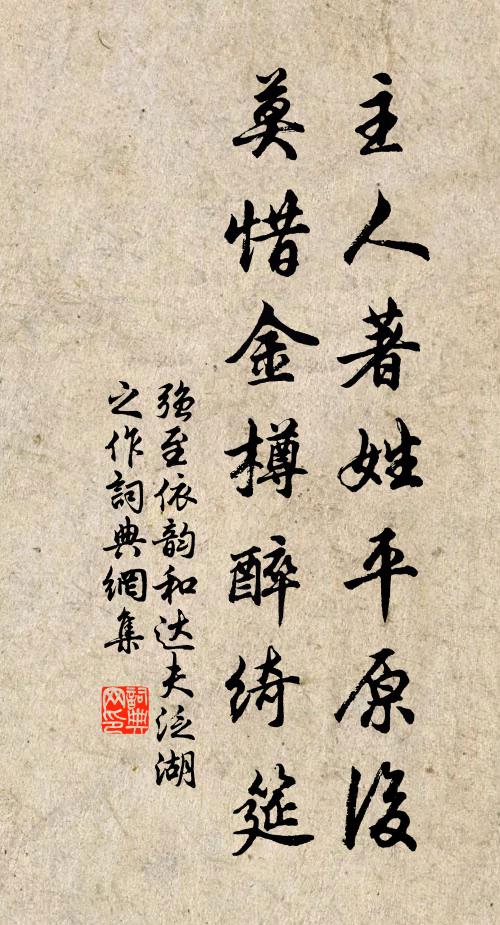 主人著姓平原後
莫惜金樽醉綺筵
强至依韵和达夫泛湖
之作詞典網集
詞典
网印